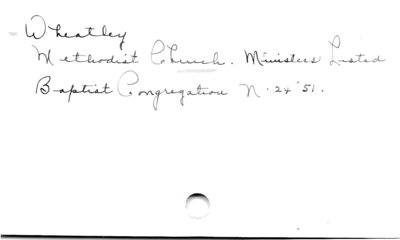 Wheatley
Methodist Church. Ministers Listed
Baptist Congregation N. 24 '51.